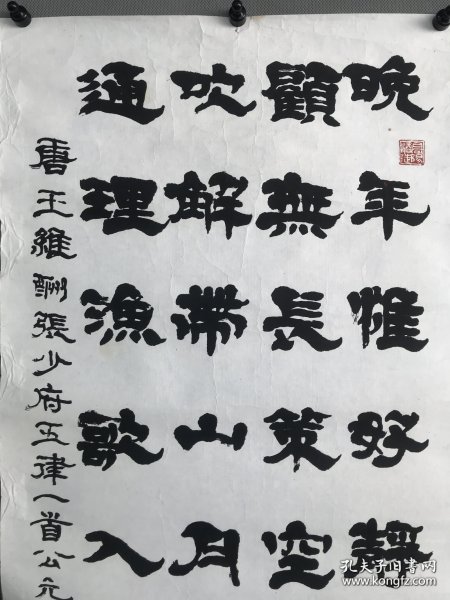 晚年惟好靜
顧無長策空
吹解帶山月
通理漁歌入
唐王維酬張少府五律一首公元
孔夫子旧书网
www.kongfz.com